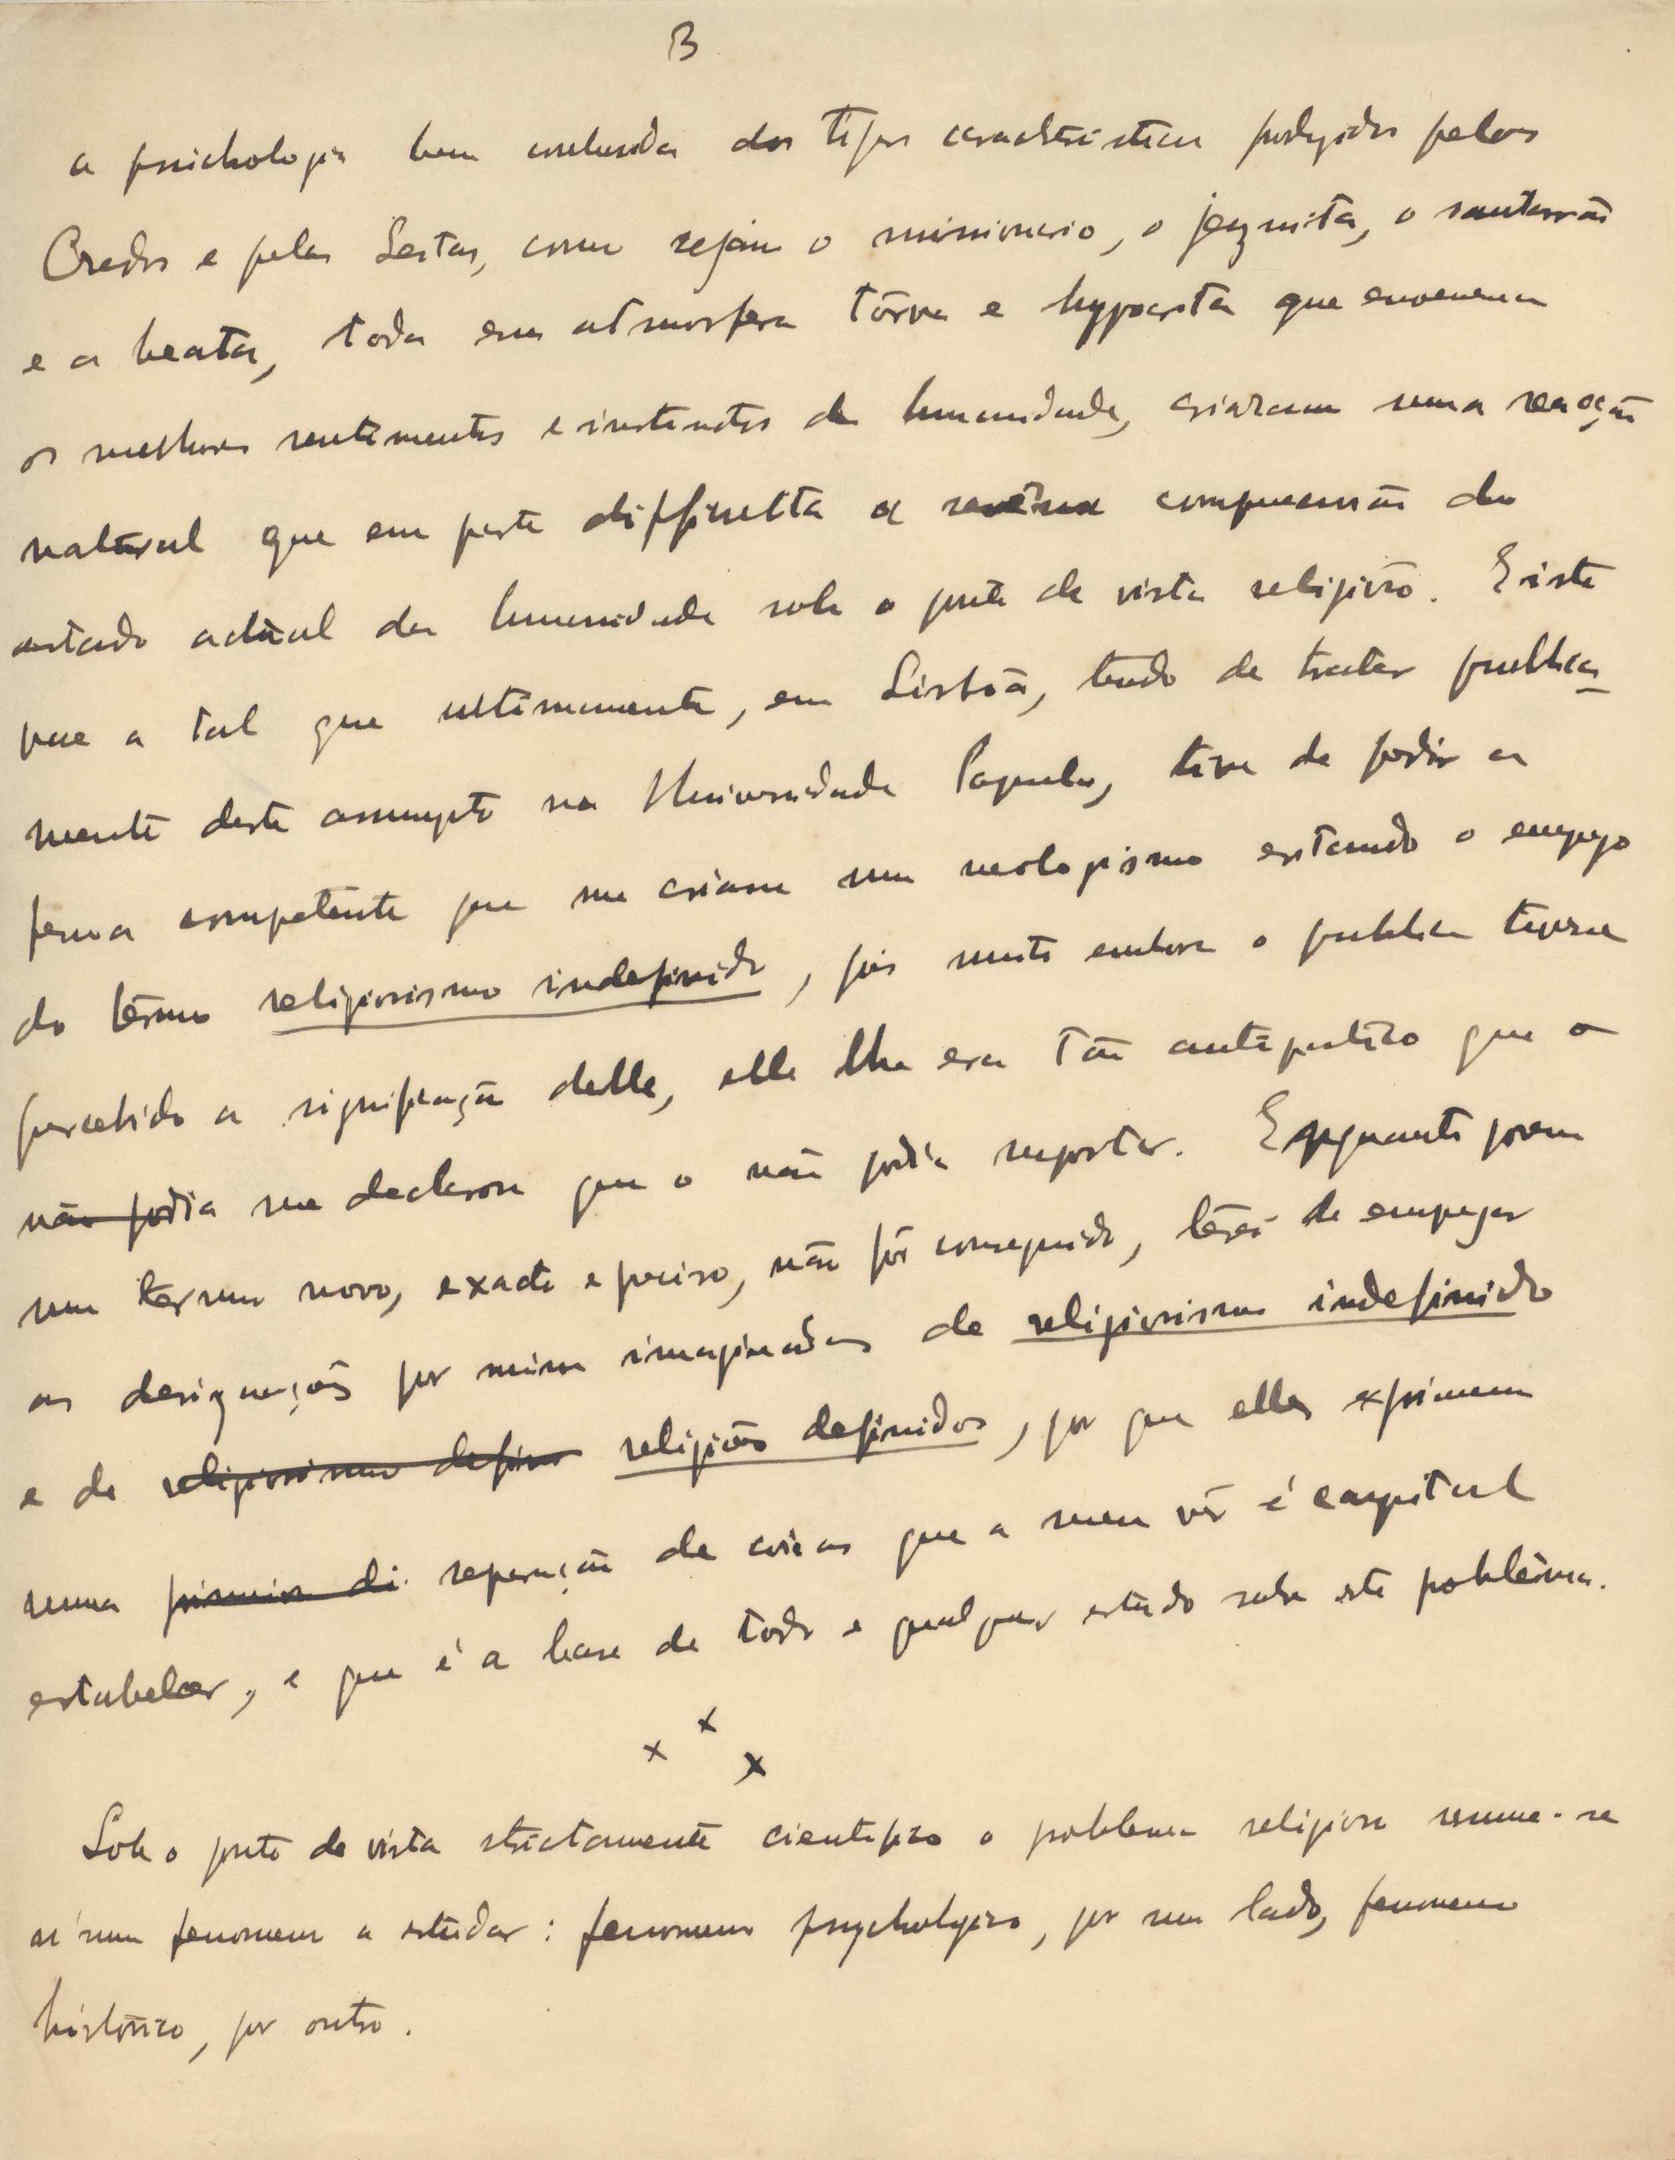 3
a psichologia bem conhecida dos typos caracteristicos protegidos pelos
Credos e pelas Seitas, como sejam o missionario, o jezuita, o santarrão
e a beata, toda essa atmosfera tôrva e hypocrita que envenena
os melhores sentimentos e instinctos da humanidade, criaram uma reacção
natural que em parte difficulta a serêna comprehensão do
estado actual da humanidade sob o ponto de vista religiozo. E isto
que a tal que ultimamente, em Lisbôa, tendo de tratar publica-
mente deste assumpto na Universidade Popular, tive de pedir a
pessoa competente que me criasse um neologismo evitando o emprego
do têrmo religiosismo indefinido, pois muito embora o publico tivesse
percebido a significação delle, elle lhe era tão antipatico que o
não podia me declarou que o não podia suportar. Emquanto porem
um termo novo, exacto e preciso, não fôr conseguido, terei de empregar
as designações por mim imaginadas de religiosismo indefinido
e de religiosismo defino religiões definidas, por que ellas exprimem
uma primeira di. separação de coisas que a meu vêr é capital
estabelecer, e que é a base de todo e qualquer estudo sobre este problêma.
x x x
Sob o ponto de vista strictamente cientifico o problema religioso resume-se
n'um fenomeno a estudar: fenomeno psychologico, por um lado, fenomeno
histórico, por outro.